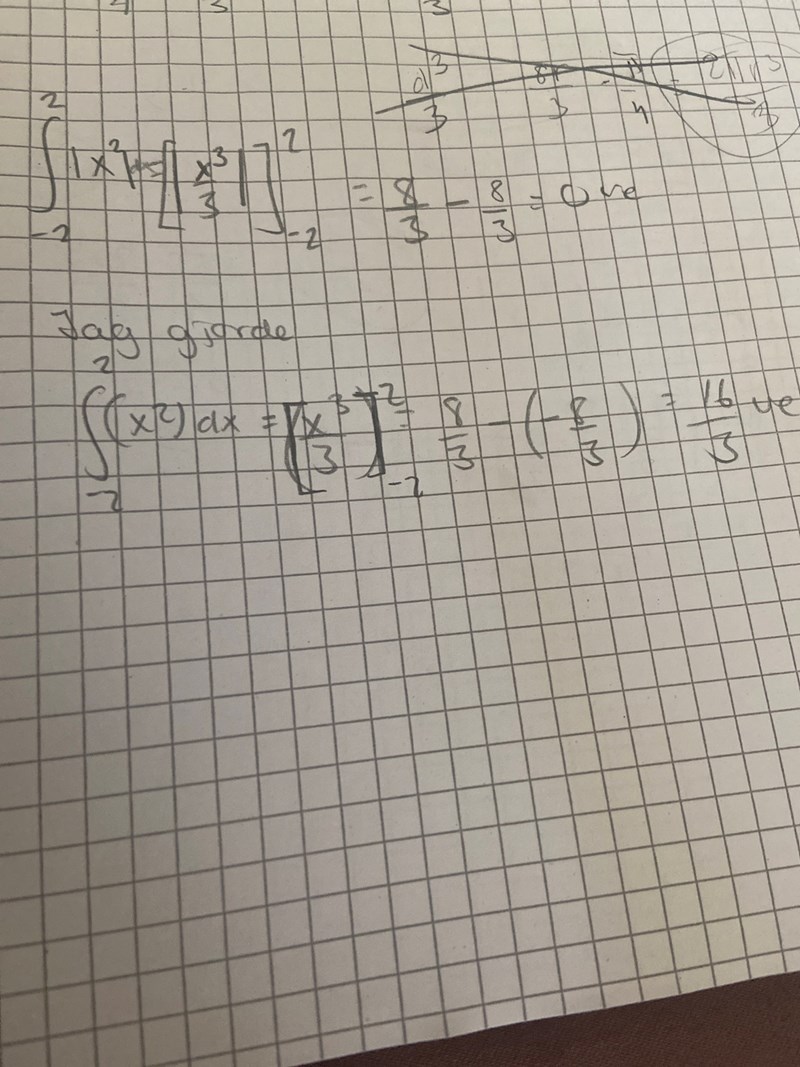 4 3 3
∫₋₂² |x²| = [|x³/3|]₋₂² = 8/3 - 8/3 = 0 ve
Jag gjorde
∫₋₂² (x²) dx = [x³/3]₋₂² = 8/3 - (-8/3) = 16/3 ve